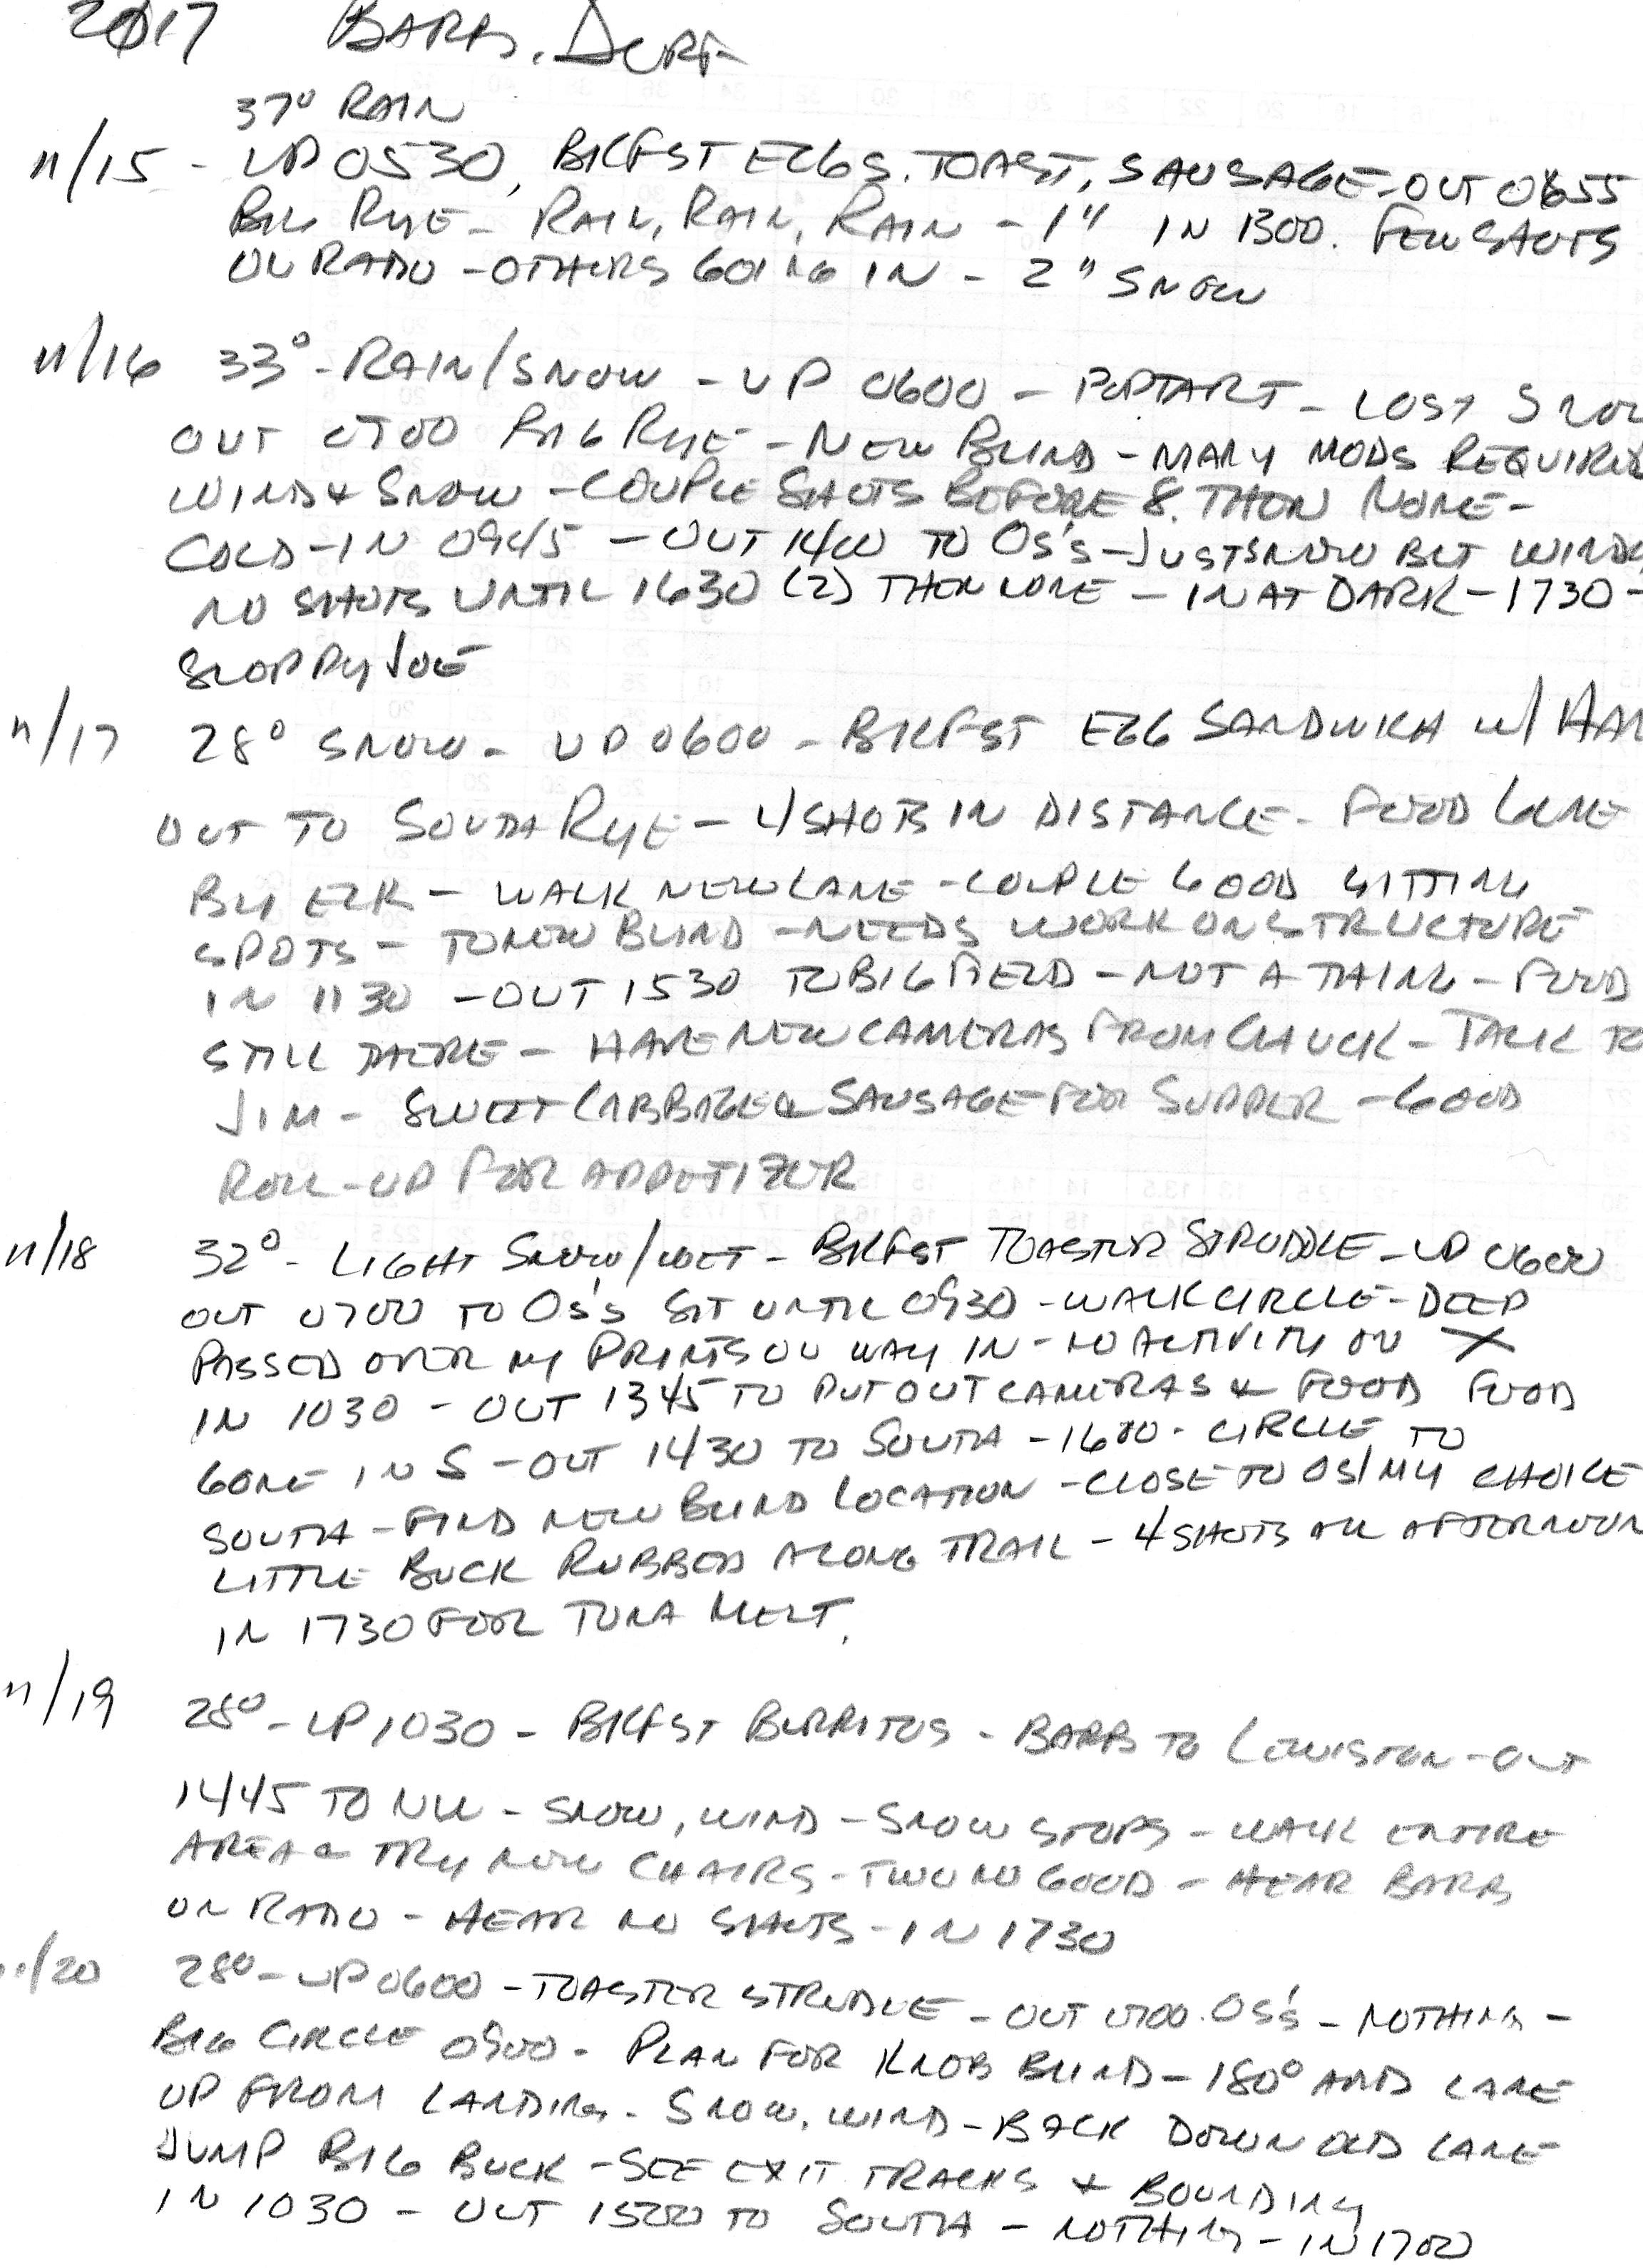 2017 BARB, DURF
37° RAIN
11/15 - UP 0530, BKFST EGGS, TOAST, SAUSAGE - OUT 0655
BIG RYE - RAIN, RAIN, RAIN - 1" IN 1300. FEW SHOTS
ON RADIO - OTHERS GOING IN - 2" SNOW
11/16 33° - RAIN/SNOW - UP 0600 - POPTART - LOST SNOW
OUT 0700 BIG RYE - NEW BLIND - MANY MODS REQUIRED
WIND & SNOW - COUPLE SHOTS BEFORE 8. THEN NONE -
COLD - IN 0945 - OUT 1400 TO OS'S - JUST SNOW BUT WINDY
NO SHOTS UNTIL 1630 (2) THEN NONE - IN AT DARK - 1730 -
SLOPPY JOE
11/17 28° SNOW - UP 0600 - BKFST EGG SANDWICH W/ HAM
OUT TO SOUTH RYE - 4 SHOTS IN DISTANCE - FOOD GONE
BY ELK - WALK NEW LANE - COUPLE GOOD SITTING
SPOTS - TO NEW BLIND - NEEDS WORK ON STRUCTURE
IN 1130 - OUT 1530 TO BIG FIELD - NOT A THING - FOOD
STILL THERE - HAVE NEW CAMERAS FROM CHUCK - TALK TO
JIM - SWEET CABBAGE & SAUSAGE FOR SUPPER - GOOD
ROLL-UP FOR APPETIZER
11/18 32° - LIGHT SNOW/WET - BKFST TOASTER STRUDDLE - UP 0600
OUT 0700 TO OS'S SIT UNTIL 0930 - WALK CIRCLE - DEER
PASSED OVER MY PRINTS ON WAY IN - NO ACTIVITY ON X
IN 1030 - OUT 1345 TO PUT OUT CAMERAS & FOOD FOOD
GONE IN S - OUT 1430 TO SOUTH - 1600 - CIRCLE TO
SOUTH - FIND NEW BLIND LOCATION - CLOSE TO OS/MY CHOICE
LITTLE BUCK RUBBED ALONG TRAIL - 4 SHOTS ALL AFTERNOON
IN 1730 FOR TUNA MELT.
11/19 28° - UP 1030 - BKFST BURRITOS - BARB TO LEWISTON - OUT
1445 TO NW - SNOW, WIND - SNOW STOPS - WALK ENTIRE
AREA & TRY NEW CHAIRS - TWO NO GOOD - HEAR BARB
ON RADIO - HEAR NO SHOTS - IN 1730
11/20 28° - UP 0600 - TOASTER STRUDLE - OUT 0700 OS'S - NOTHING -
BIG CIRCLE 0900 - PLAN FOR KNOB BLIND - 180° AND LANE
UP FROM LANDING - SNOW, WIND - BACK DOWN OLD LANE
JUMP BIG BUCK - SEE EXIT TRACKS & BOUNDING
IN 1030 - OUT 1500 TO SOUTH - NOTHING - IN 1700